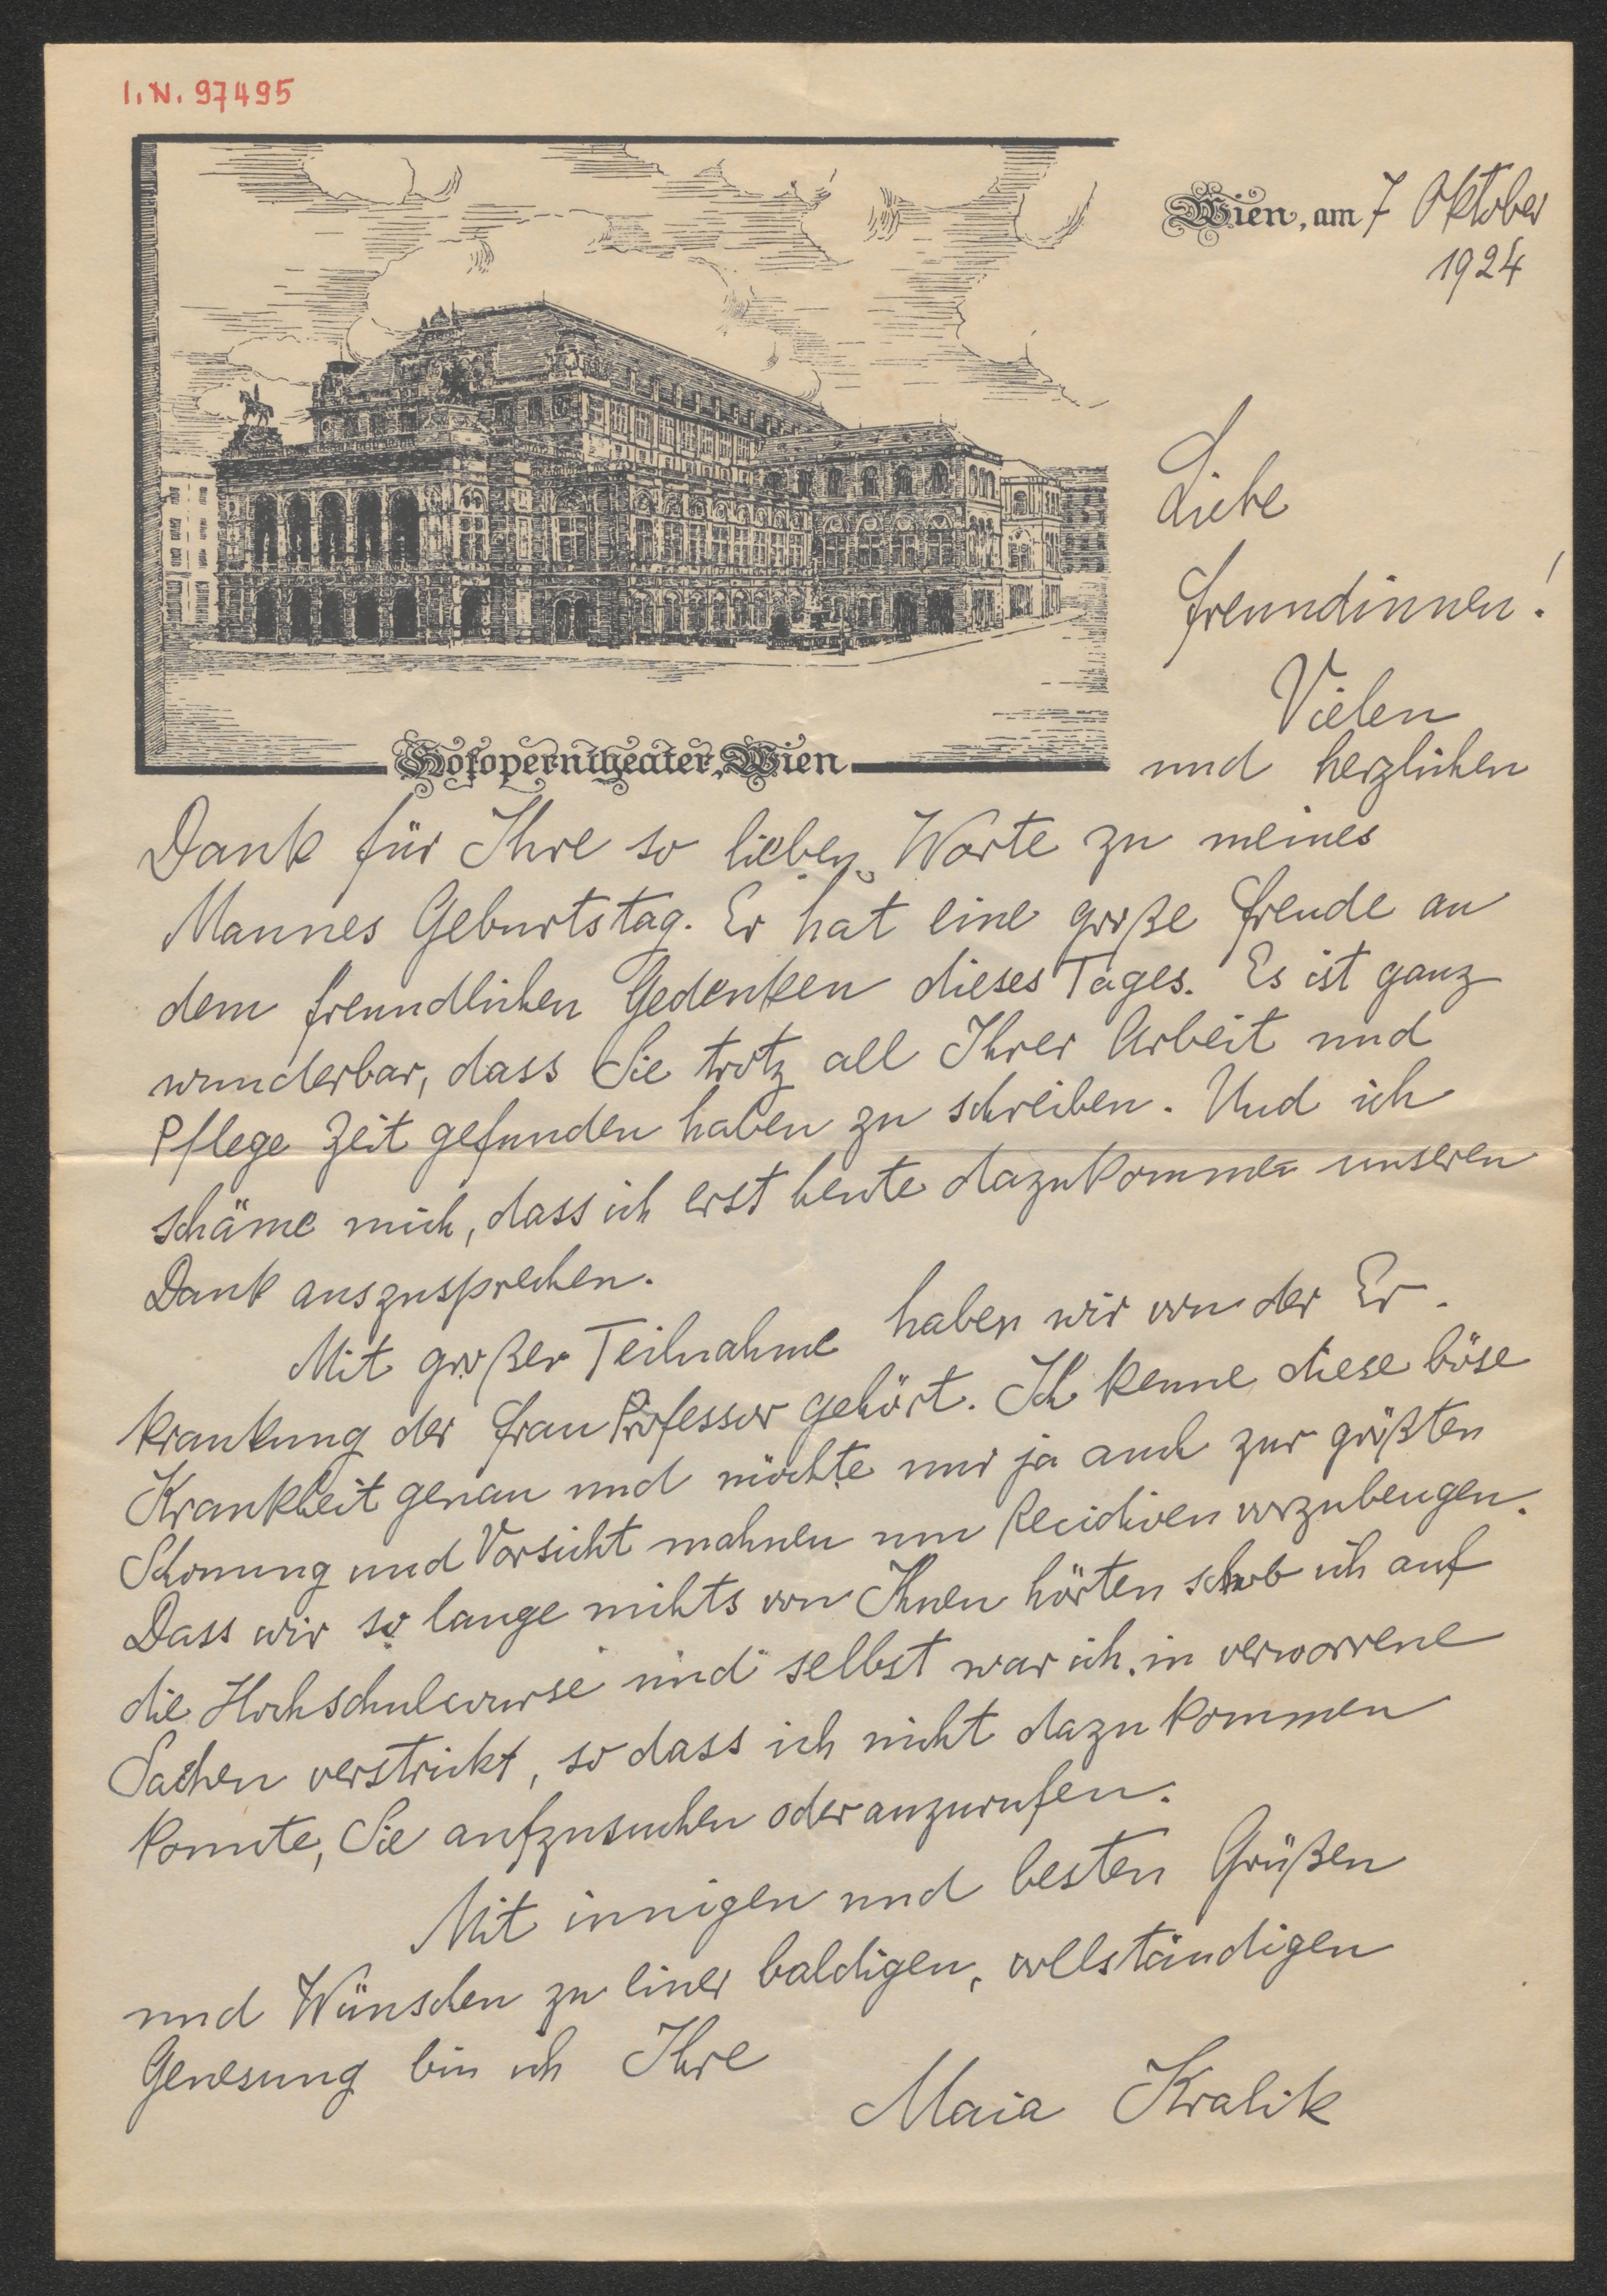 I. N. 97495
Wien, am 7 Oktober
1924
Hofoperntheater, Wien
Liebe
Freundinnen!
Vielen
und herzlichen
Dank für Ihre so lieben Worte zu meines
Mannes Geburtstag. Er hat eine große Freude an
dem freundlichen Gedenken dieses Tages. Es ist ganz
wunderbar, dass Sie trotz all Ihrer Arbeit und
Pflege Zeit gefunden haben zu schreiben. Und ich
schäme mich, dass ich erst heute dazukomme unseren
Dank auszusprechen.
Mit großer Teilnahme haben wir von der Er-
krankung der Frau Professor gehört. Ich kenne diese böse
Krankheit genau und möchte nur ja auch zur größten
Schonung und Vorsicht mahnen um Recidiven vorzubeugen.
Dass wir so lange nichts von Ihnen hörten schob ich auf
die Hochschulcurse und selbst war ich in verworrene
Sachen verstrickt, so dass ich nicht dazu kommen
konnte, Sie aufzusuchen oder anzurufen.
Mit innigen und besten Grüßen
und Wünschen zu einer baldigen, vollständigen
Genesung bin ich Ihre
Maia Kralik